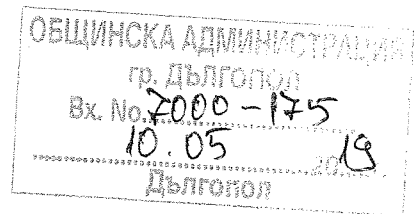 ОБЩИНСКА АДМИНИСТРАЦИЯ
гр. ДЪЛГОПОЛ
Вх. No. 7000-175
10.05 2019
Дългопол